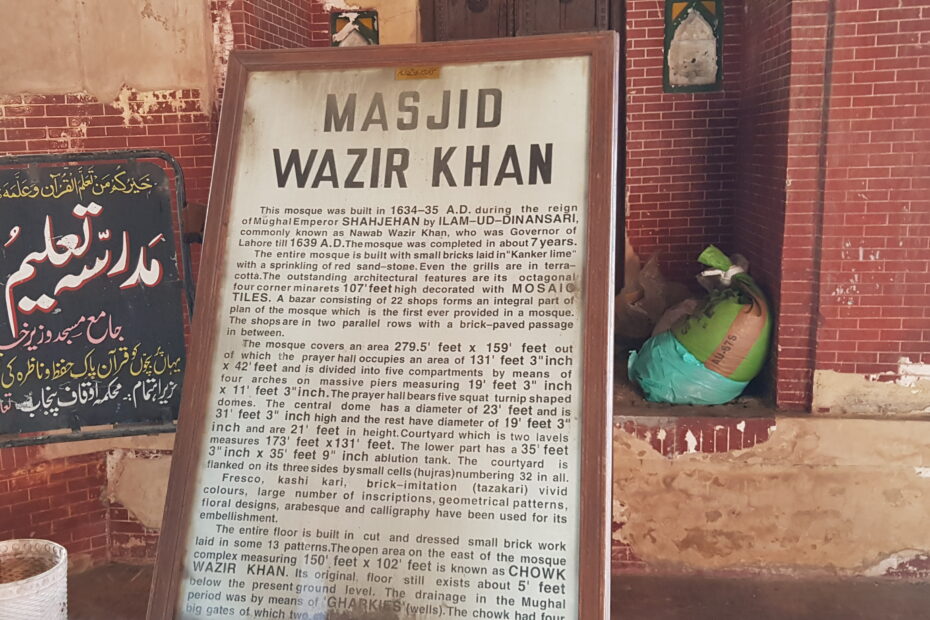 MASJID
WAZIR KHAN
This mosque was built in 1634–35 A.D. during the reign
of Mughal Emperor SHAHJEHAN by ILAM–UD–DINANSARI,
commonly known as Nawab Wazir Khan, who was Governor of
Lahore till 1639 A.D. The mosque was completed in about 7 years.
The entire mosque is built with small bricks laid in "Kanker lime"
with a sprinkling of red sand–stone. Even the grills are in terra–
cotta. The outstanding architectural features are its octagonal
four corner minarets 107' feet high decorated with MOSAIC
TILES. A bazar consisting of 22 shops forms an integral part of
plan of the mosque which is the first ever provided in a mosque.
The shops are in two parallel rows with a brick–paved passage
in between.
The mosque covers an area 279.5' feet x 159' feet out
of which the prayer hall occupies an area of 131' feet 3" inch
x 42' feet and is divided into five compartments by means of
four arches on massive piers measuring 19' feet 3" inch
x 11' feet 3" inch. The prayer hall bears five squat turnip shaped
domes. The central dome has a diameter of 23' feet and is
31' feet 3" inch high and the rest have diameter of 19' feet 3"
inch and are 21' feet in height. Courtyard which is two lavels
measures 173' feet x 131' feet. The lower part has a 35' feet
3" inch x 35' feet 9" inch ablution tank. The courtyard is
flanked on its three sides by small cells (hujras) numbering 32 in all.
Fresco, kashi kari, brick–imitation (tazakari) vivid
colours, large number of inscriptions, geometrical patterns,
floral designs, arabesque and calligraphy have been used for its
embellishment.
The entire floor is built in cut and dressed small brick work
laid in some 13 patterns. The open area on the east of the mosque
complex measuring 150' feet x 102' feet is known as CHOWK
WAZIR KHAN. Its original floor still exists about 5' feet
below the present ground level. The drainage in the Mughal
period was by means of 'GHARKIES' (wells). The chowk had four
big gates of which two
خَیرُکُم مَن تَعَلَّمَ القُرآن وَعَلَّمَہٗ
مَدرسّہ تعلیمُ
جامع مسجد وزیر خ
یہاں پر بچوں کو قرآن پاک حفظ و ناظرہ کی
زیر اہتمام .. محکمہ اوقاف پنجاب
AU-575